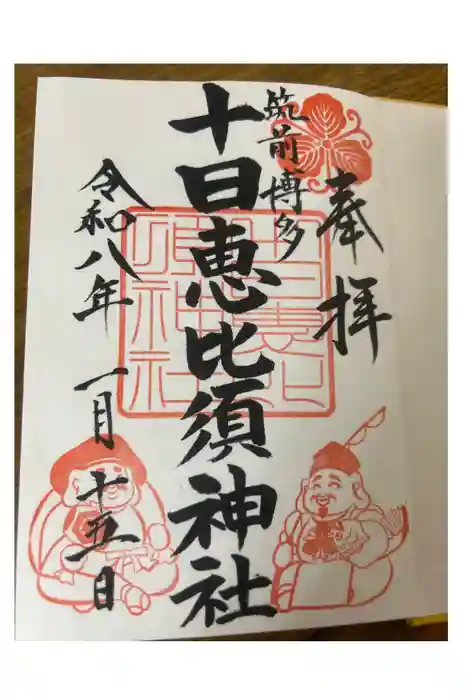 奉拝
筑前博多
十日恵比須神社
令和八年 一月 十五日
十日恵比須神社